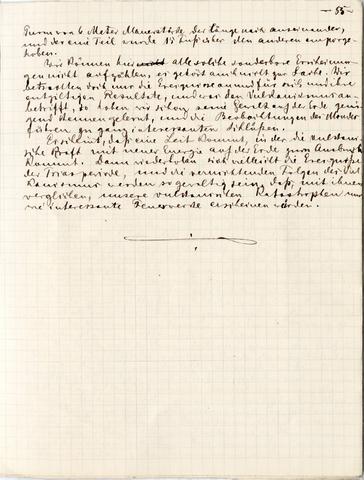 - 55 -
Turm von 6 Meter Mauerstärke der Länge nach auseinander,
und der eine Teil wurde 15 Fuß über den anderen empor ge-
hoben.
Wir können hier alle solche sonderbare Erscheinun-
gen nicht aufzählen, es gehört auch nicht zur Sache. Wir
betrachten doch nur die Ereignisse an und für sich und ihre
entgiltigen Resultate, und was den Vulkanismus an-
betrifft, so haben wir schon seine Gewalt auf der Erde genü-
gend kennen gelernt, und die Beobachtungen des Mondes
führen zu ganz interessanten Schlüßen.
Es scheint, daß eine Zeit kommt, in der die vulkani-
sche Kraft mit neuer Energie auf der Erde zum Ausbruch
kommt. Dann wiederholen sich vielleicht die Ereignisse
der Triasperiode, und die vernichtenden Folgen des Vul-
kanismus werden so gewaltig sein, daß, mit ihnen
verglichen, unsere vulkanischen Katastrophen nur
wie interessante Feuerwerke erscheinen würden.